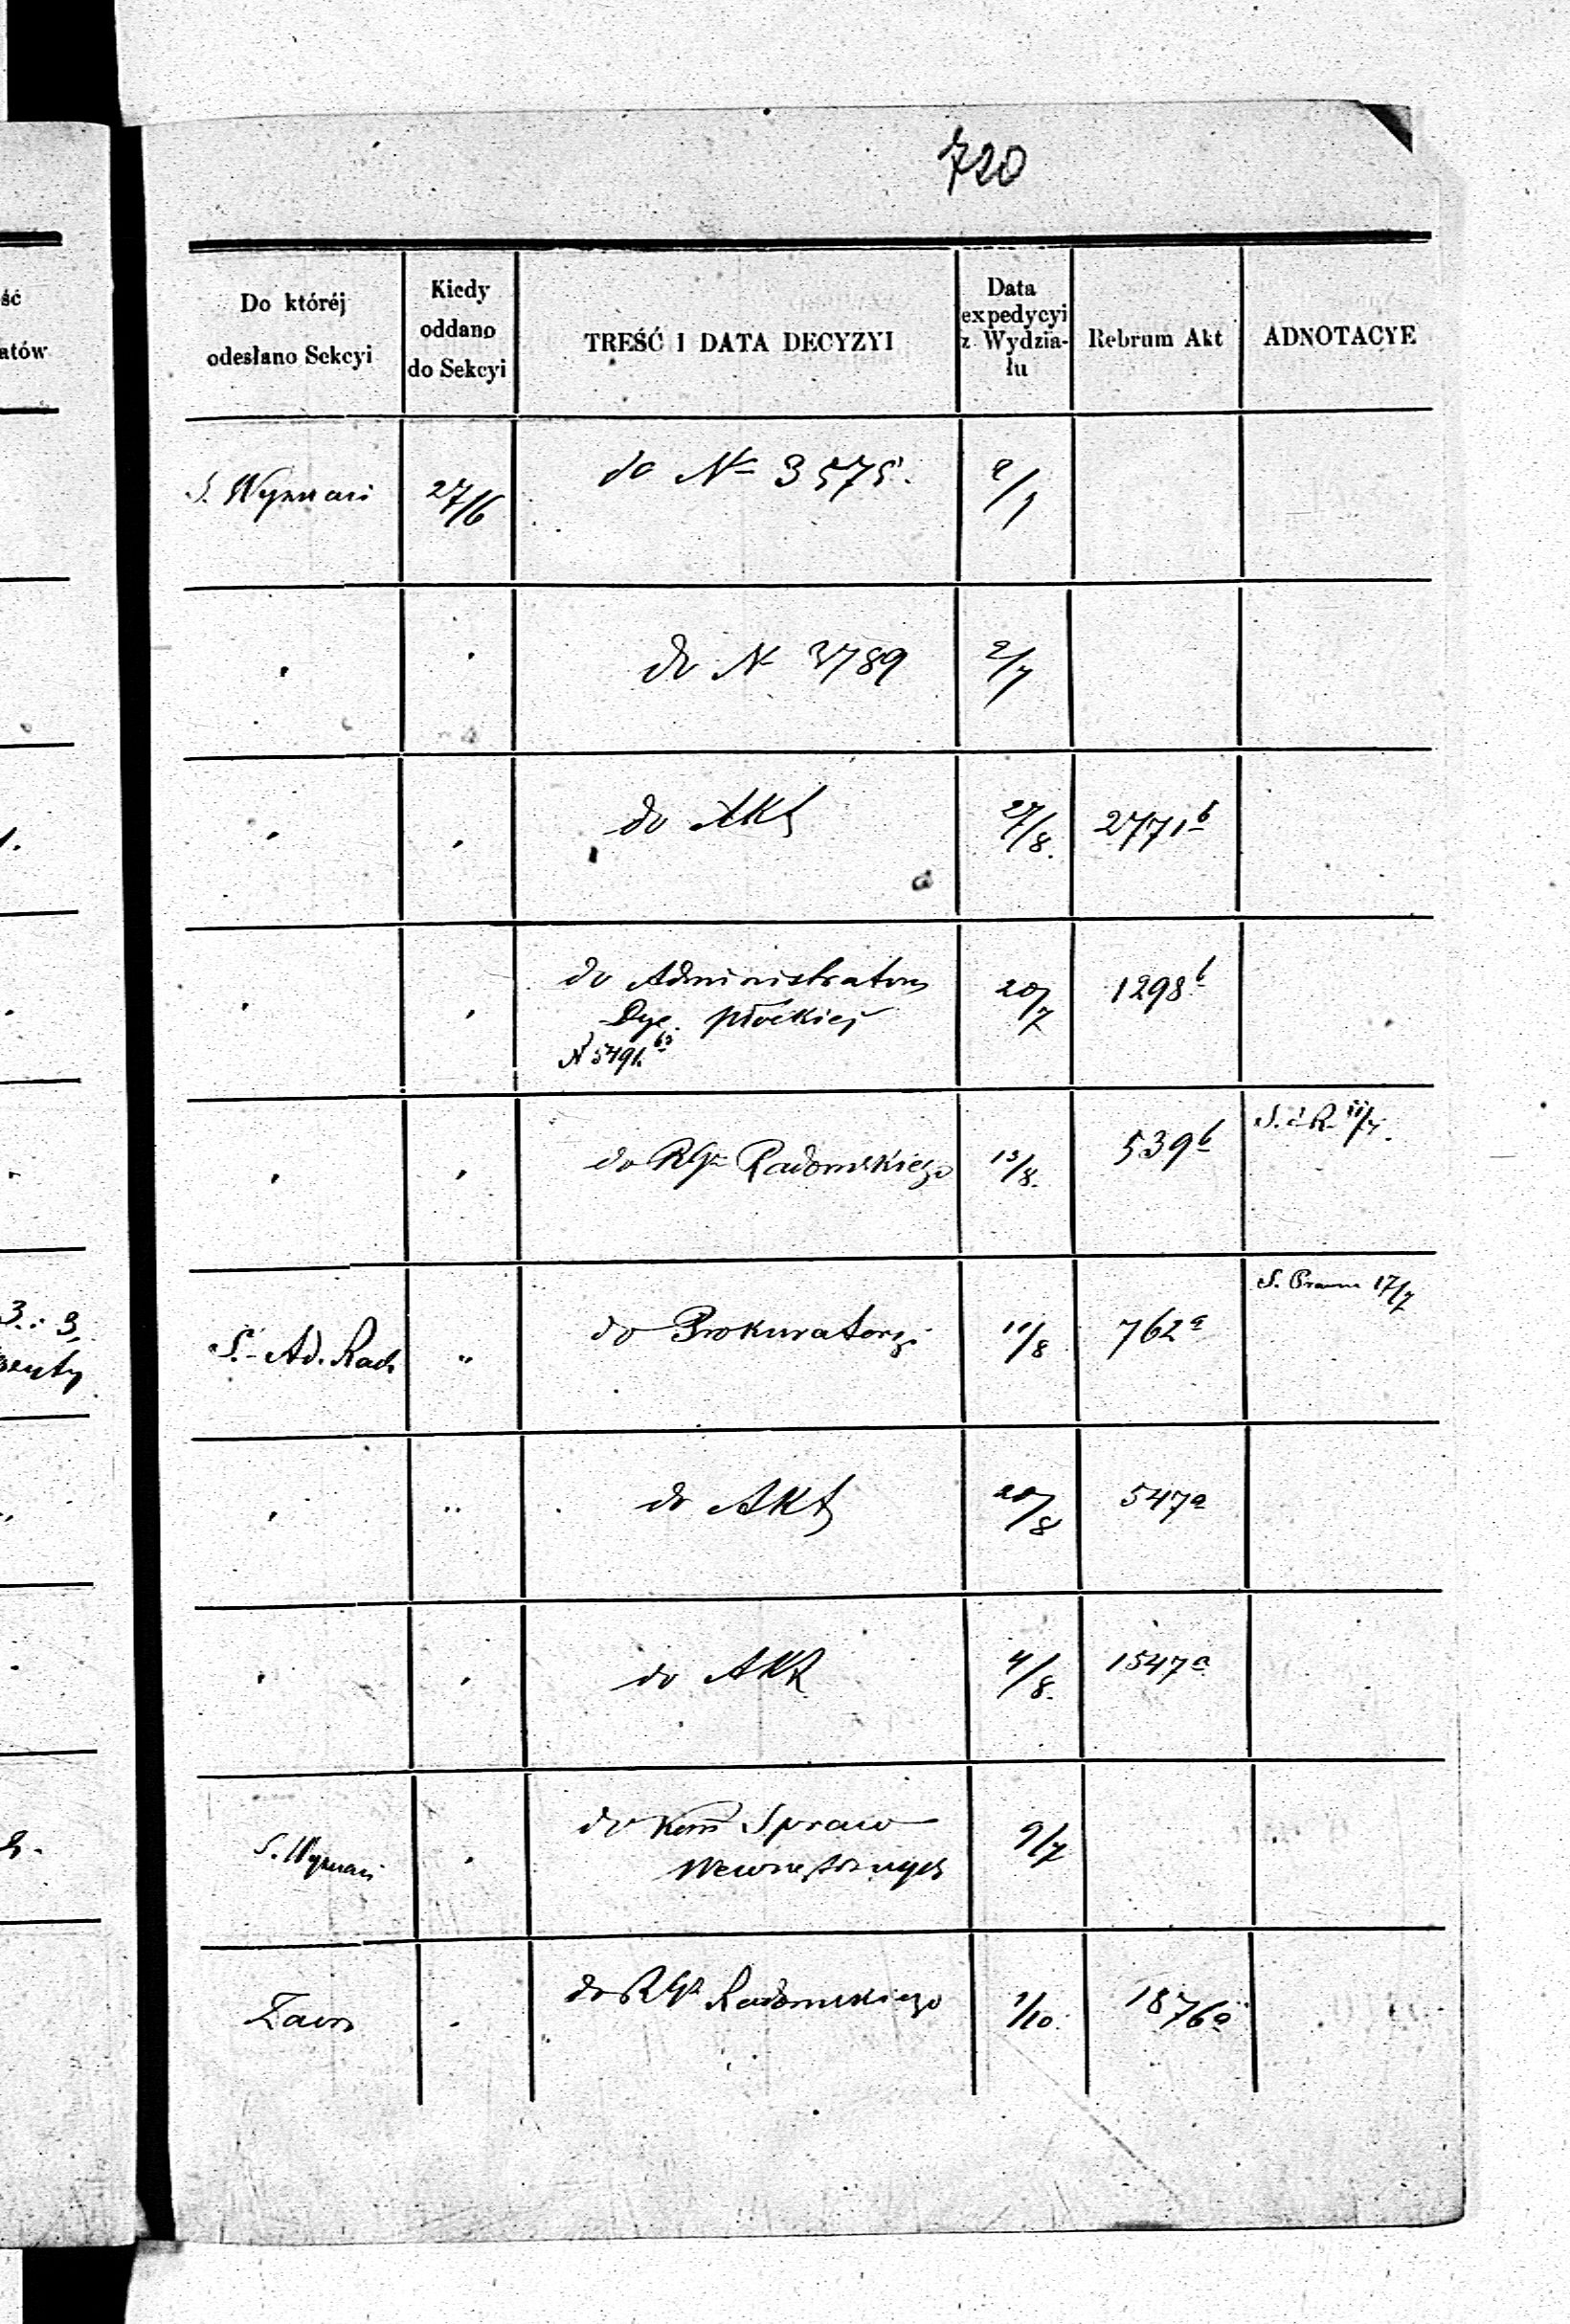 720
ść
atów
Do któréj
odesłano Sekcyi
Kiedy
oddano
do Sekcyi
TREŚĆ I DATA DECYZYI
Data
expedycyi
z Wydzia-
łu
Rebrum Akt
ADNOTACYE
S. Wyznań 27/6 do № 3575. 2/7
do № 3789 2/7
do Akt 27/8. 2771b
do Administratora 20/7 1298b
Dyec. Płockiej
№ 5491
do RGo Radomskiego 13/8. 539b S. R. 11/7.
S. Ad. Rach " do Prokuratoryi 11/8 762a S. Prawna 17/7
do Akt 20/8 547a
do Akt 4/8. 1547a
S. Wyznań do Kom Spraw 9/7
Wewnętrznych
do RGo Radomskiego 1/10. 1876a